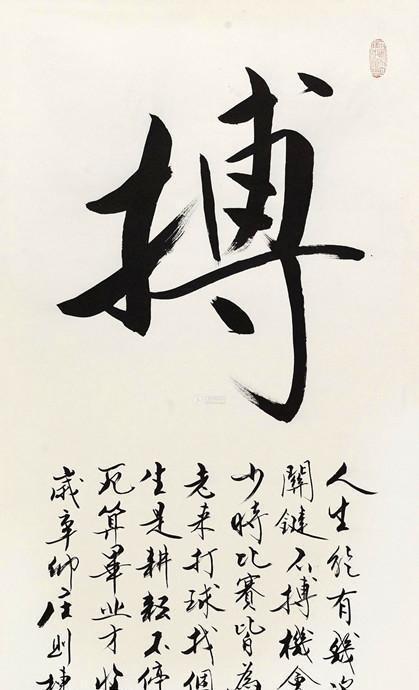 搏
人生能有幾
關鍵不搏機會
少時比賽皆為
老來打球找個
生是耕耘不停
死算畢業才
庄則棟